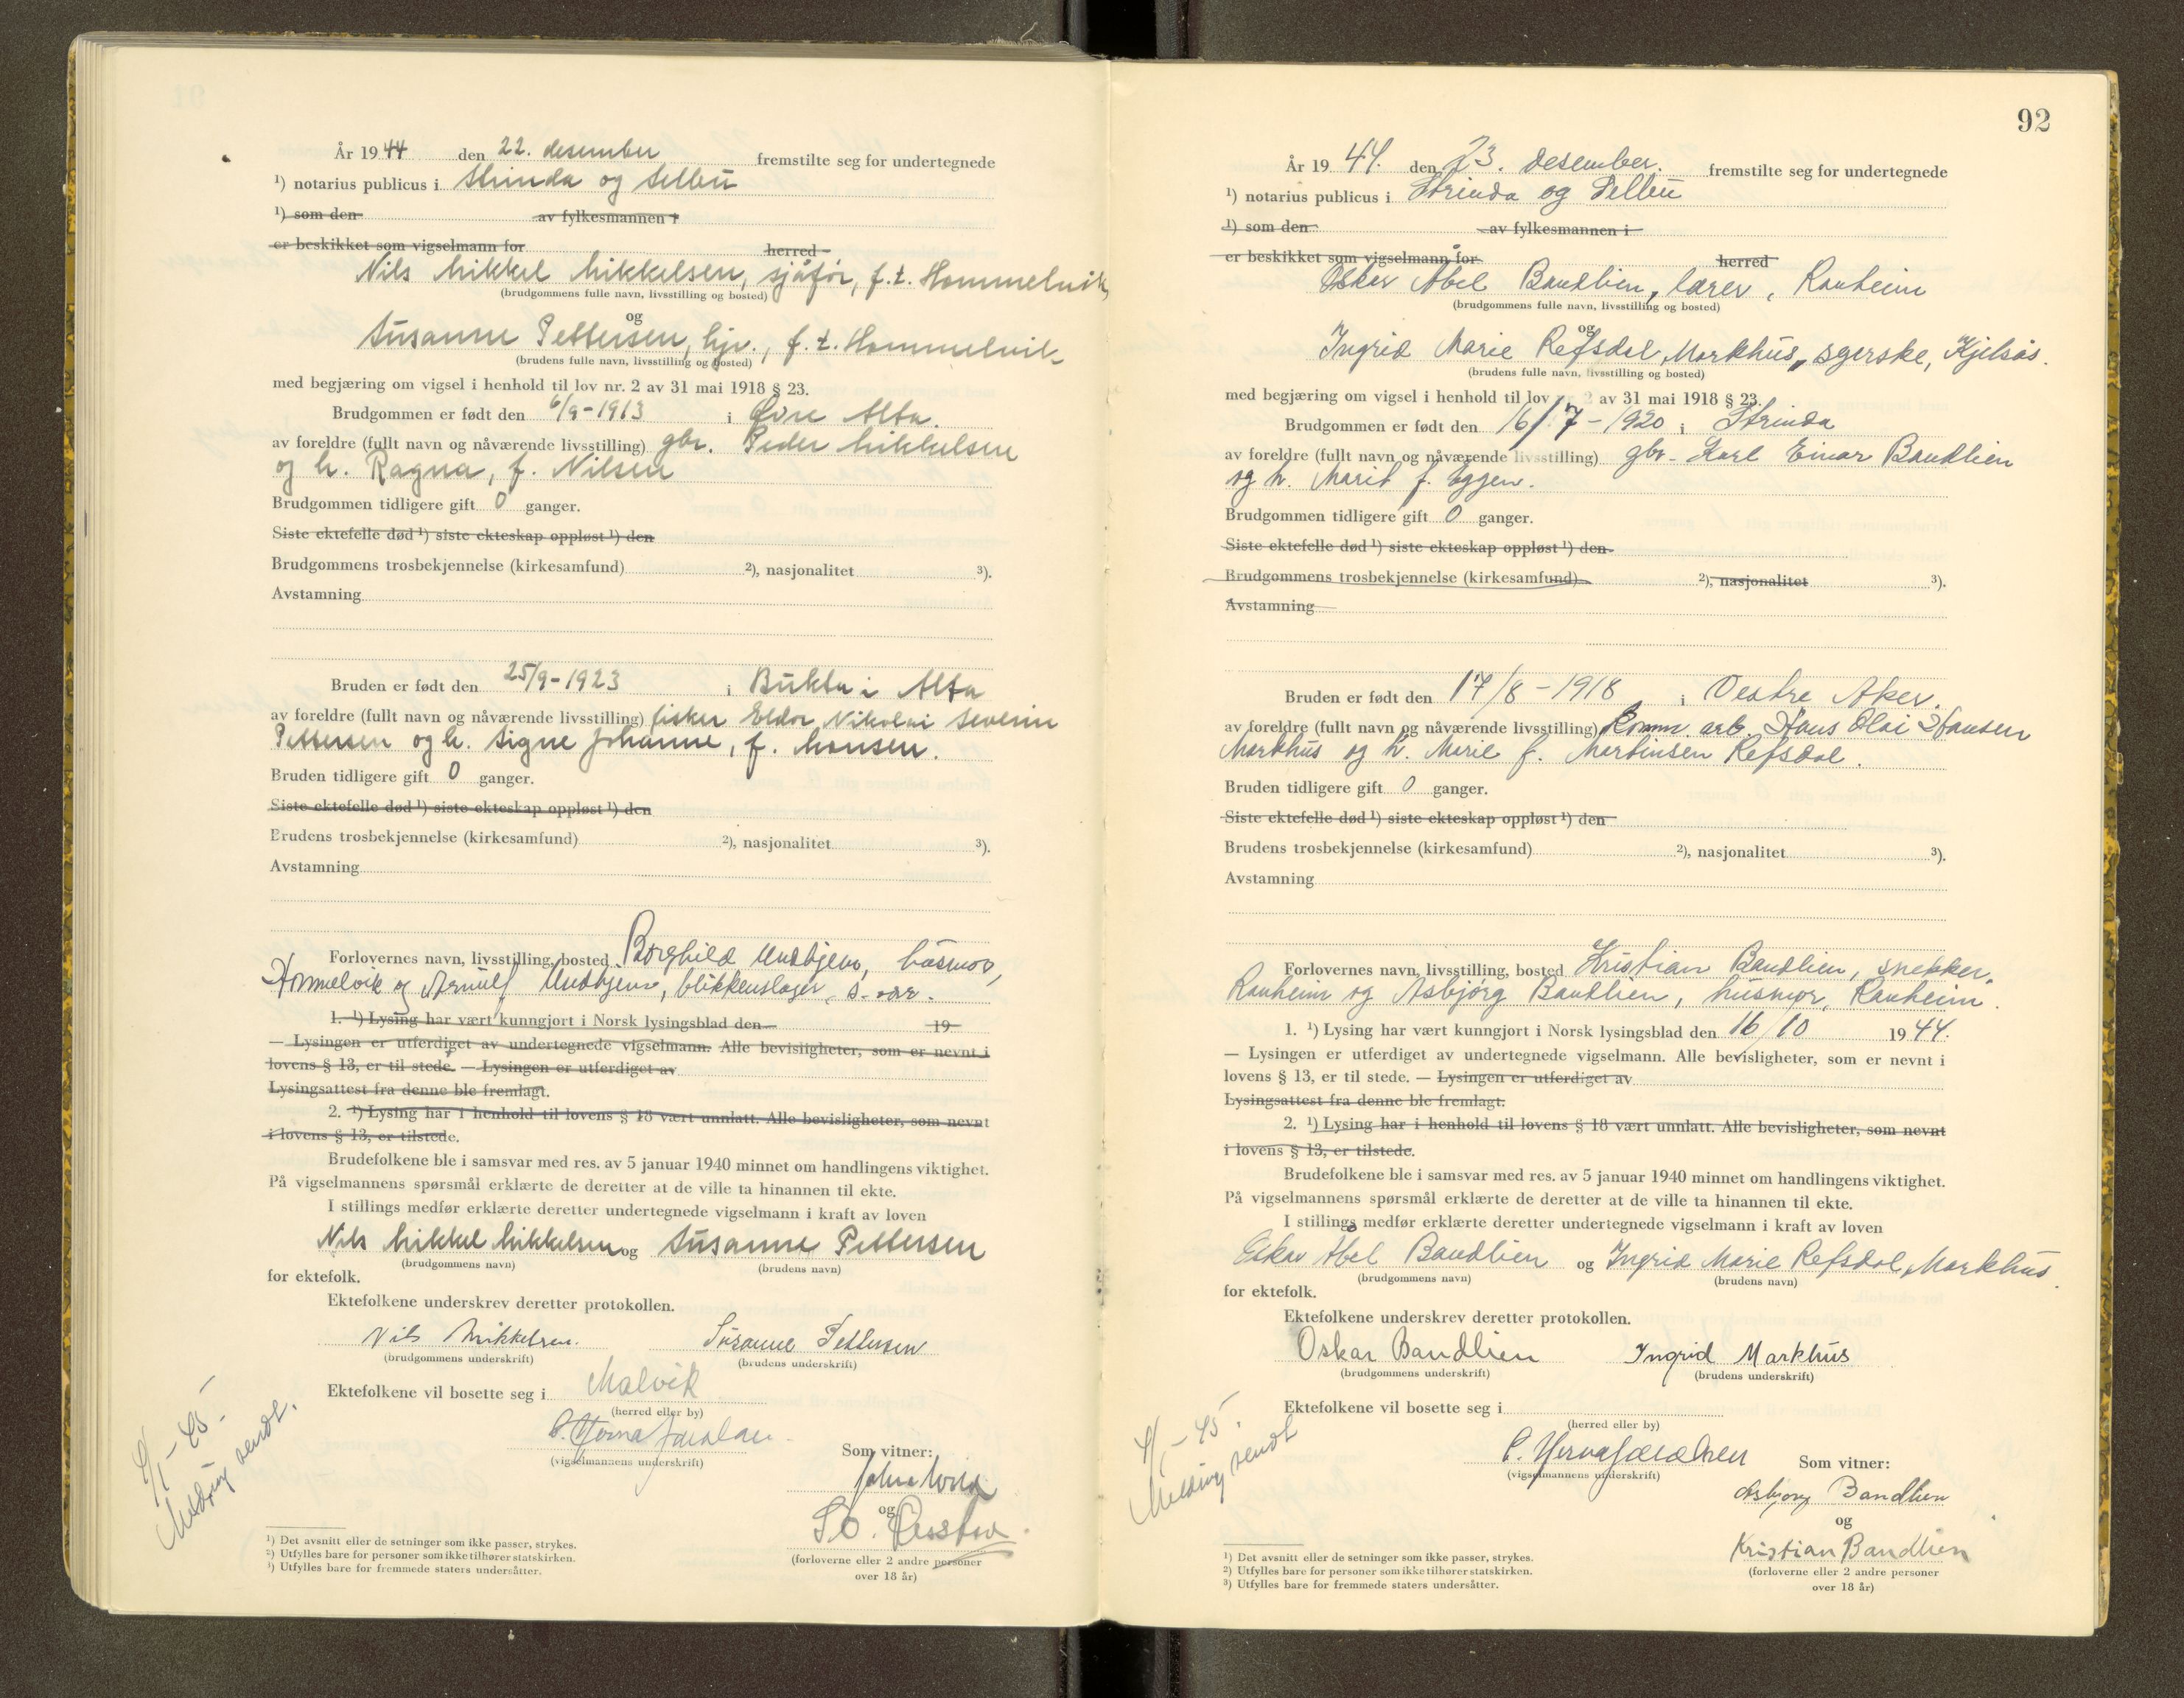 År 1944 den 22. desember fremstilte seg for undertegnede
¹) notarius publicus i Strinda og Selbu
¹) som den av fylkesmannen i
er beskikket som vigselmann for herred
Nils Mikkel Mikkelsen, sjåfør, f.t. Hommelvik
(brudgommens fulle navn, livsstilling og bosted)
og
Susanne Pettersen, hjv., f.t. Hommelvik
(brudens fulle navn, livsstilling og bosted)
med begjæring om vigsel i henhold til lov nr. 2 av 31 mai 1918 § 23.
Brudgommen er født den 6/9-1913 i Øvre Alta.
av foreldre (fullt navn og nåværende livsstilling) gbr. Peder Mikkelsen
og h. Ragna, f. Nilsen
Brudgommen tidligere gift 0 ganger.
Siste ektefelle død ¹) siste ekteskap oppløst ¹) den
Brudgommens trosbekjennelse (kirkesamfund) ²), nasjonalitet ³).
Avstamning
Bruden er født den 25/9-1923 i Bukta i Alta
av foreldre (fullt navn og nåværende livsstilling) fisker Eldor Nikolai Severin
Pettersen og h. Signe Johanne, f. Monsen.
Bruden tidligere gift 0 ganger.
Siste ektefelle død ¹) siste ekteskap oppløst ¹) den
Brudens trosbekjennelse (kirkesamfund) ²), nasjonalitet ³).
Avstamning
Forlovernes navn, livsstilling, bosted Borghild husmor,
Hommelvik og Arnulf blikkenslager, s.
1. ¹) Lysing har vært kunngjort i Norsk lysingsblad den 19
— Lysingen er utferdiget av undertegnede vigselmann. Alle bevisligheter, som er nevnt i
lovens § 13, er til stede. — Lysingen er utferdiget av
Lysingsattest fra denne ble fremlagt.
2. ¹) Lysing har i henhold til lovens § 18 vært unnlatt. Alle bevisligheter, som nevnt
i lovens § 13, er tilstede.
Brudefolkene ble i samsvar med res. av 5 januar 1940 minnet om handlingens viktighet.
På vigselmannens spørsmål erklærte de deretter at de ville ta hinannen til ekte.
I stillings medfør erklærte deretter undertegnede vigselmann i kraft av loven
Nils Mikkel Mikkelsen og Susanne Pettersen
(brudgommens navn) (brudens navn)
for ektefolk.
Ektefolkene underskrev deretter protokollen.
Nils Mikkelsen. Susanne Pettersen
(brudgommens underskrift) (brudens underskrift)
Ektefolkene vil bosette seg i Malvik
(herred eller by)
(vigselmannens underskrift)
Som vitner:
og
(forloverne eller 2 andre personer
over 18 år)
4/1-45-
Melding sendt.
¹) Det avsnitt eller de setninger som ikke passer, strykes.
²) Utfylles bare for personer som ikke tilhører statskirken.
³) Utfylles bare for fremmede staters undersåtter.
92
År 1944. den 23. desember. fremstilte seg for undertegnede
¹) notarius publicus i Strinda og Selbu
¹) som den av fylkesmannen i
er beskikket som vigselmann for herred
Oskar Abel Bandlien, lærer, Ranheim
(brudgommens fulle navn, livsstilling og bosted)
og
Ingrid Marie Refsdal Markhus, syerske, Kjelsås.
(brudens fulle navn, livsstilling og bosted)
med begjæring om vigsel i henhold til lov nr. 2 av 31 mai 1918 § 23.
Brudgommen er født den 16/7-1920 i Strinda
av foreldre (fullt navn og nåværende livsstilling) gbr. Karl Einar Bandlien
og h. Marit f. Eggen.
Brudgommen tidligere gift 0 ganger.
Siste ektefelle død ¹) siste ekteskap oppløst ¹) den
Brudgommens trosbekjennelse (kirkesamfund) ²), nasjonalitet ³).
Avstamning
Bruden er født den 17/8-1918 i Vestre Aker.
av foreldre (fullt navn og nåværende livsstilling) Komm. arb. Hans Olai Hansen
Markhus og h. Marie f. Martinsen Refsdal.
Bruden tidligere gift 0 ganger.
Siste ektefelle død ¹) siste ekteskap oppløst ¹) den
Brudens trosbekjennelse (kirkesamfund) ²), nasjonalitet ³).
Avstamning
Forlovernes navn, livsstilling, bosted Kristian Bandlien, snekker,
Ranheim og Asbjørg Bandlien, husmor, Ranheim.
1. ¹) Lysing har vært kunngjort i Norsk lysingsblad den 16/10 1944.
— Lysingen er utferdiget av undertegnede vigselmann. Alle bevisligheter, som er nevnt i
lovens § 13, er til stede. — Lysingen er utferdiget av
Lysingsattest fra denne ble fremlagt.
2. ¹) Lysing har i henhold til lovens § 18 vært unnlatt. Alle bevisligheter, som nevnt
i lovens § 13, er tilstede.
Brudefolkene ble i samsvar med res. av 5 januar 1940 minnet om handlingens viktighet.
På vigselmannens spørsmål erklærte de deretter at de ville ta hinannen til ekte.
I stillings medfør erklærte deretter undertegnede vigselmann i kraft av loven
Oskar Abel Bandlien og Ingrid Marie Refsdal Markhus.
(brudgommens navn) (brudens navn)
for ektefolk.
Ektefolkene underskrev deretter protokollen.
Oskar Bandlien Ingrid Markhus
(brudgommens underskrift) (brudens underskrift)
Ektefolkene vil bosette seg i
(herred eller by)
(vigselmannens underskrift)
Som vitner:
Asbjørg Bandlien
og
Kristian Bandlien
(forloverne eller 2 andre personer
over 18 år)
4/1-45.
Melding sendt
¹) Det avsnitt eller de setninger som ikke passer, strykes.
²) Utfylles bare for personer som ikke tilhører statskirken.
³) Utfylles bare for fremmede staters undersåtter.